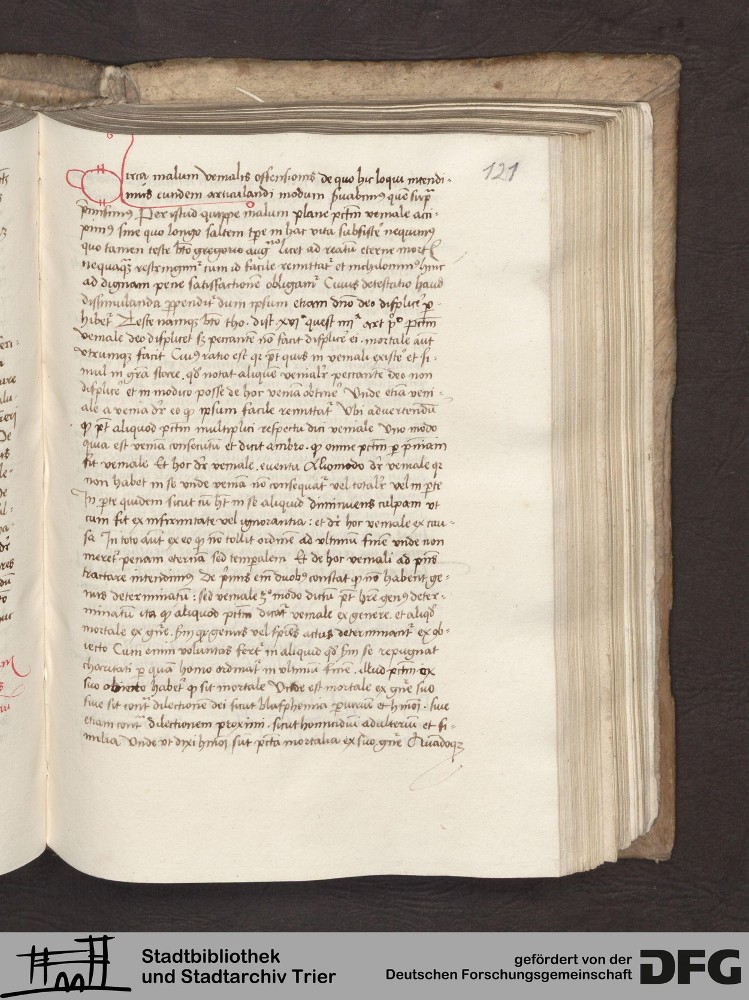 121
Circa malum venialis offensionis de quo hic loqui intendi-
mus eundem articulandi modum servabimus quem supra
premisimus. Per istud quippe malum plane pctm veniale acci-
pimus sine quo longo saltem tpe in hac vita subsistere nequimus
quo tamen teste bto gregorio aug licet ad reatum eterne mortis
nequaqz restringimur tum id facile remittatur et nichilominus huic
ad dignam pene satisfactione obligamur Cuius detestatio haud
dissimulanda perpenditur dum ipsum etiam dno deo displicere per-
hibetur Teste namqz bto tho. dist. xvi quest iii art po pctm
veniale deo displicet sz peccante no facit displicere ei. mortale aut
utrumqz facit Cuius ratio est qr pt quis in veniali existere et si-
mul in gra stare, qd notat aliquem venialr peccante deo non
displicere et in modico posse de hoc venia obtinere Unde etia veni-
ale a venia dr eo qz ipsum facile remittatur Ubi advertendu
qz pt aliquod pctm multiplici respectu dici veniale Uno modo
quia est venia consecutu et dicit ambro. qz omne pctm per pniam
fit veniale Et hoc dr veniale eventu Aliomodo dr veniale qz
non habet in se unde venia no consequatur vel totalr vel in parte
In parte quidem sicut cu ht in se aliquid diminuens culpam ut
cum fit ex infirmitate vel ignorantia: et dr hoc veniale ex cau-
sa In toto aut ex eo qz no tollit ordine ad ultimu fine unde non
meretur penam eterna sed temporalem Et de hoc veniali ad pns
tractare intendimus De primis em duobus constat qz no habent ge-
nus determinatu: sed veniale 3o modo dictu pt hre genus deter-
minatum ita qz aliquod pctm dicatur veniale ex genere. et aliqd
mortale ex gne. fm qz genus vel spes actus determinantur ex ob-
iecto Cum enim voluntas fertur in aliquid qd fm se repugnat
charitati per quam homo ordinatur in ultimu fine. illud pctm ex
suo obiecto habet qz sit mortale Unde est mortale ex gne suo
sive sit contra dilectionem dei sicut blasphemia periuriu et hmoi. sive
etiam contra dilectionem proximi. sicut homicidiu adulteriu et si-
milia Unde ut dixi hmoi sunt pcta mortalia ex suo gne Quandoqz
Stadtbibliothek
und Stadtarchiv Trier
gefördert von der
Deutschen Forschungsgemeinschaft
DFG